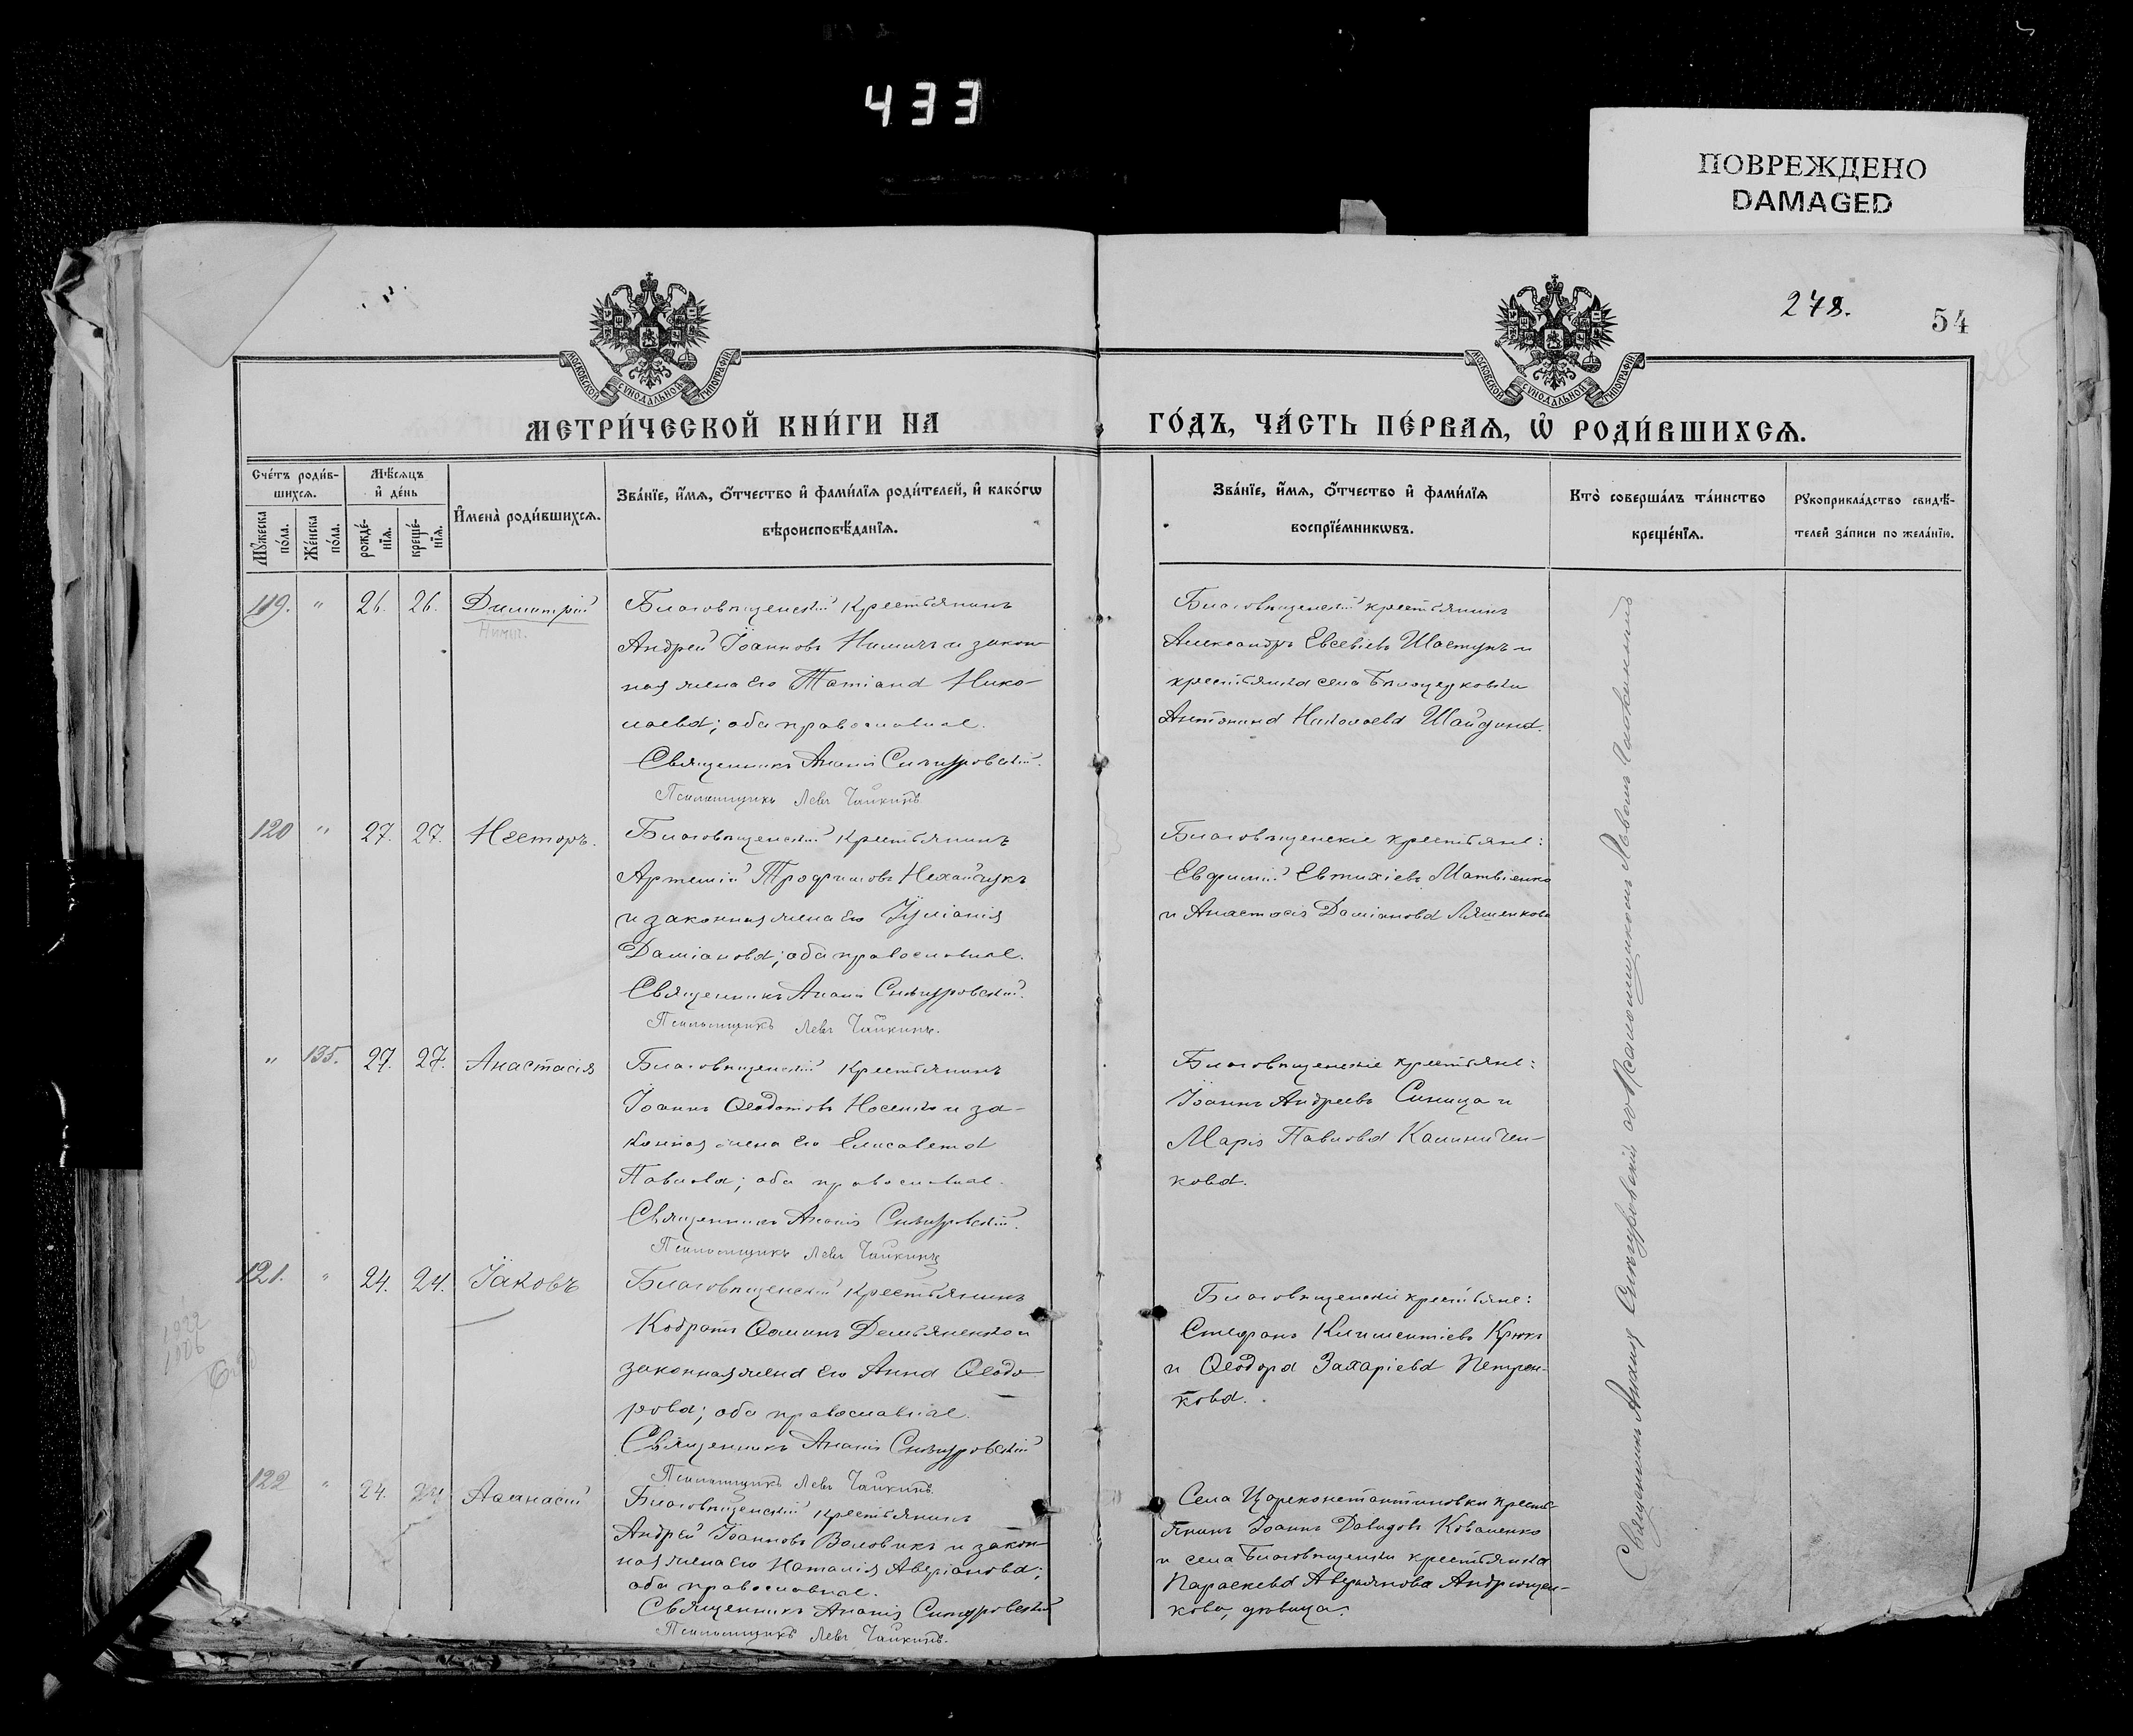 433
ПОВРЕЖДЕНО
DAMAGED
278.
54
МОСКОВСКОЙ СѴНОДАЛЬНОЙ ТИПОГРАФІИ
МОСКОВСКОЙ СѴНОДАЛЬНОЙ ТИПОГРАФІИ
МЕТРИ́ЧЕСКОЙ КНИ́ГИ НА
ГО́ДЪ, ЧА́СТЬ ПЕ́РВАЯ, Ѡ҆ РОДИ́ВШИХСЯ.
Сче́тъ роди́в-
шихся.
Мѣ́сяцъ
и҆ де́нь
Му́жеска
по́ла.
Же́нска
по́ла.
рожде́-
нїя.
креще́-
нїя.
И҆мена̀ роди́вшихся.
Зва́нїе, и҆́мя, ѻ҆́тчество и҆ фами́лїя роди́телей, и҆ како́гѡ
вѣроисповѣ́данїя.
Зва́нїе, и҆́мя, ѻ҆́тчество и҆ фами́лїя
воспрїе́мникѡвъ.
Кто̀ соверша́лъ та́инство
креще́нїя.
Рукоприкла́дство свидѣ́-
телей за́писи по жела́нїю.
119. " 26. 26. Димитрій
Благовѣщенскій крестьянинъ
Андрей Іоанновъ Нимичъ и закон-
ная жена его Татіана Нико-
лаева; оба православные.
Священникъ Ананія Снѣгуровскій.
Псаломщикъ Левъ Чайкинъ.
Благовѣщенскій крестьянинъ
Александръ Евсевіевъ Шастунъ и
крестьянка села
Антонина Николаева Шайдина.
120 " 27. 27. Несторъ.
Благовѣщенскій крестьянинъ
Артемій Трофимовъ Нехайчукъ
и законная жена его Іуліанія
Даміанова; оба православные.
Священникъ Ананія Снѣгуровскій.
Псаломщикъ Левъ Чайкинъ.
Благовѣщенскіе крестьяне:
Евфимій Евтихіевъ Матвіенко
и Анастасія Даміанова Ляшенкова
" 135. 27. 27. Анастасія
Благовѣщенскій крестьянинъ
Іоаннъ Ѳеодотовъ Носенко и за-
конная жена его Елисавета
Павлова; оба православные.
Священникъ Ананія Снѣгуровскій.
Псаломщикъ Левъ Чайкинъ
Благовѣщенскіе крестьяне:
Іоаннъ Андреевъ Синица и
Марія Павлова Калиничен-
кова.
121. " 24. 24. Іаковъ
Благовѣщенскій крестьянинъ
Кодратъ Ѳоминъ Демьяненко и
законная жена его Анна Ѳеодо-
рова; оба православные.
Священникъ Ананія Снѣгуровскій
Псаломщикъ Левъ Чайкинъ.
Благовѣщенскіе крестьяне:
Стефанъ Климентіевъ Крюкъ
и Ѳеодора Захаріева Петрен-
кова.
122 " 24. 24 Аѳанасій
Благовѣщенскій крестьянинъ
Андрей Іоанновъ Воловикъ и закон-
ная жена его Наталія Аверіанова;
оба православные.
Священникъ Ананія Снѣгуровскій
Псаломщикъ Левъ Чайкинъ.
Села Цареконстантиновки кресть-
янинъ Іоаннъ Давидовъ Коваленко
и села Благовѣщенки крестьянка
Параскева Аверьянова Андрющен-
кова, дѣвица.
Священникъ Ананія Снѣгуровскій со псаломщикомъ Львомъ Чайкинымъ
1922
1926